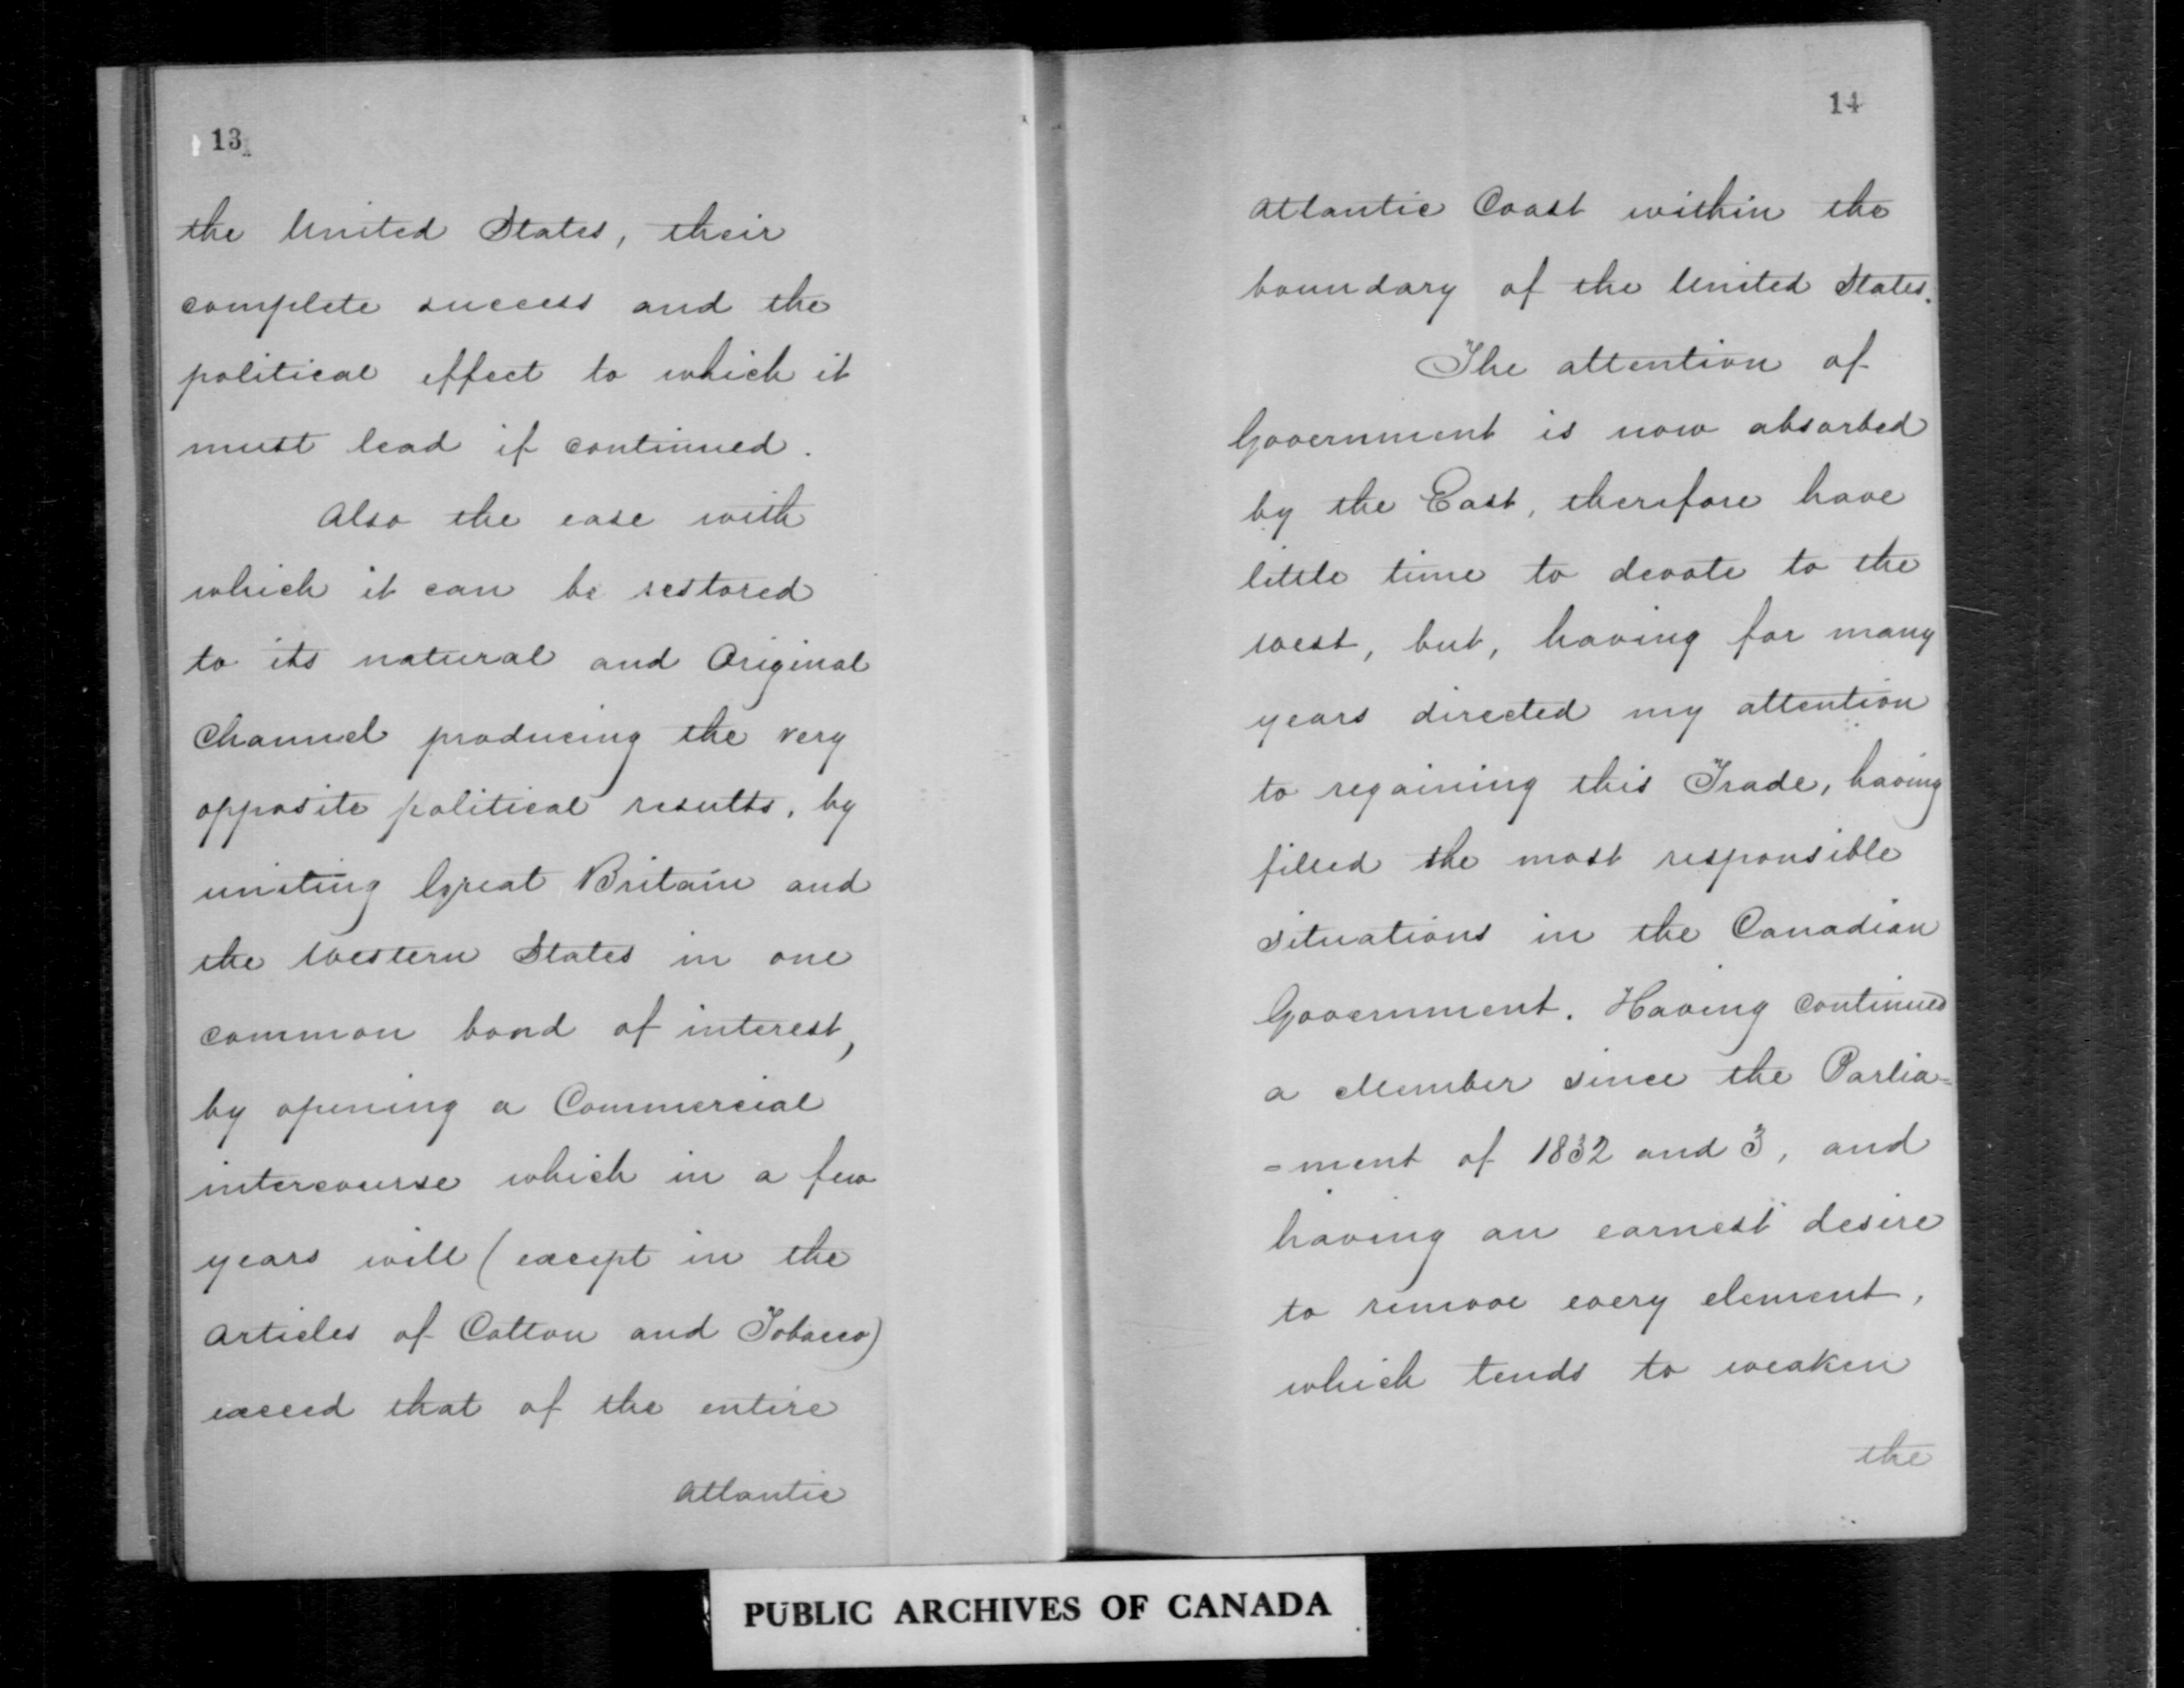 13
the United States, their
complete success and the
political effect to which it
must lead if continued.
Also the ease with
which it can be restored
to its natural and Original
Channel producing the very
opposite political results, by
uniting Great Britain and
the Western States in one
common bond of interest,
by opening a Commercial
intercourse which in a few
years will (except in the
Articles of Cotton and Tobacco)
exceed that of the entire
Atlantic
14
Atlantic Coast within the
boundary of the United States.
The attention of
Government is now absorbed
by the East, therefore have
little time to devote to the
West, but, having for many
years directed my attention
to regaining this Trade, having
filled the most responsible
situations in the Canadian
Government. Having continued
a Member since the Parlia=
=ment of 1832 and 3, and
having an earnest desire
to remove every element,
which tends to weaken
the
PUBLIC ARCHIVES OF CANADA